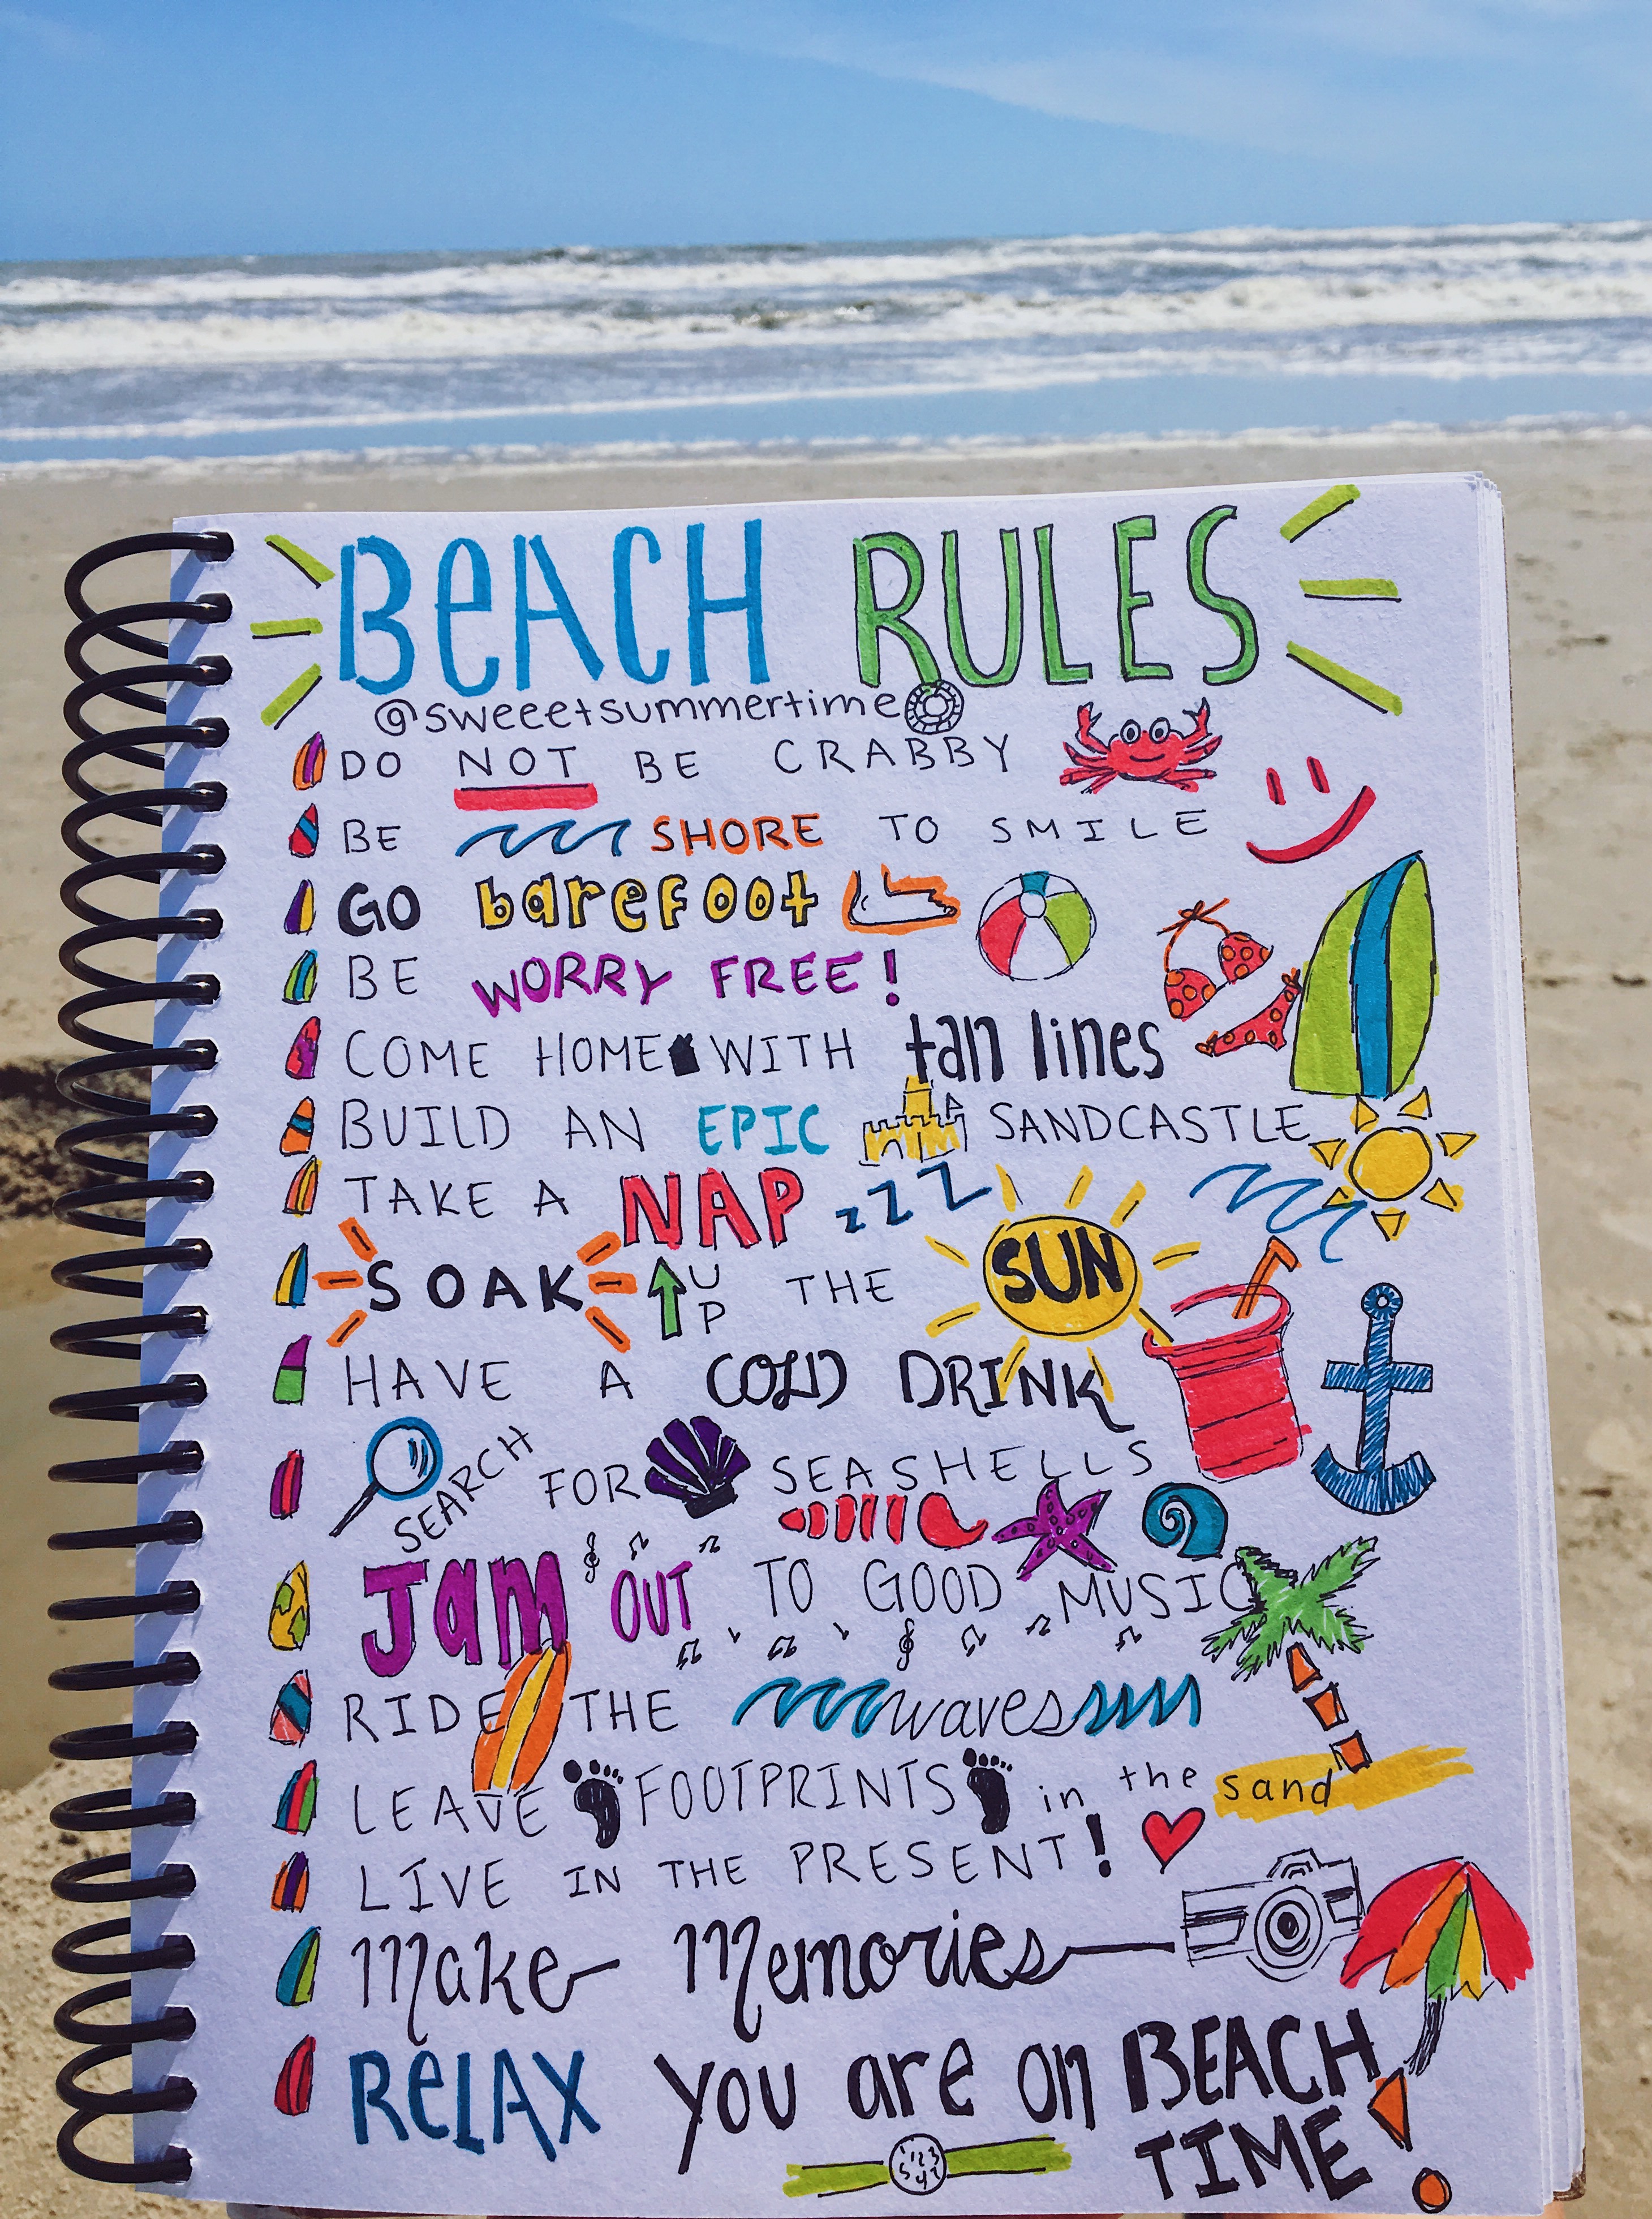 BEACH RULES
@sweeetsummertime
DO NOT BE CRABBY
BE SHORE TO SMILE
GO barefoot
BE WORRY FREE!
COME HOME WITH tan lines
BUILD AN EPIC SANDCASTLE
TAKE A NAP zzz
SOAK UP THE SUN
HAVE A COLD DRINK
SEARCH FOR SEASHELLS
Jam OUT TO GOOD MUSIC
RIDE THE waves
LEAVE FOOTPRINTS in the sand
LIVE IN THE PRESENT!
Make Memories
RELAX you are on BEACH
TIME!